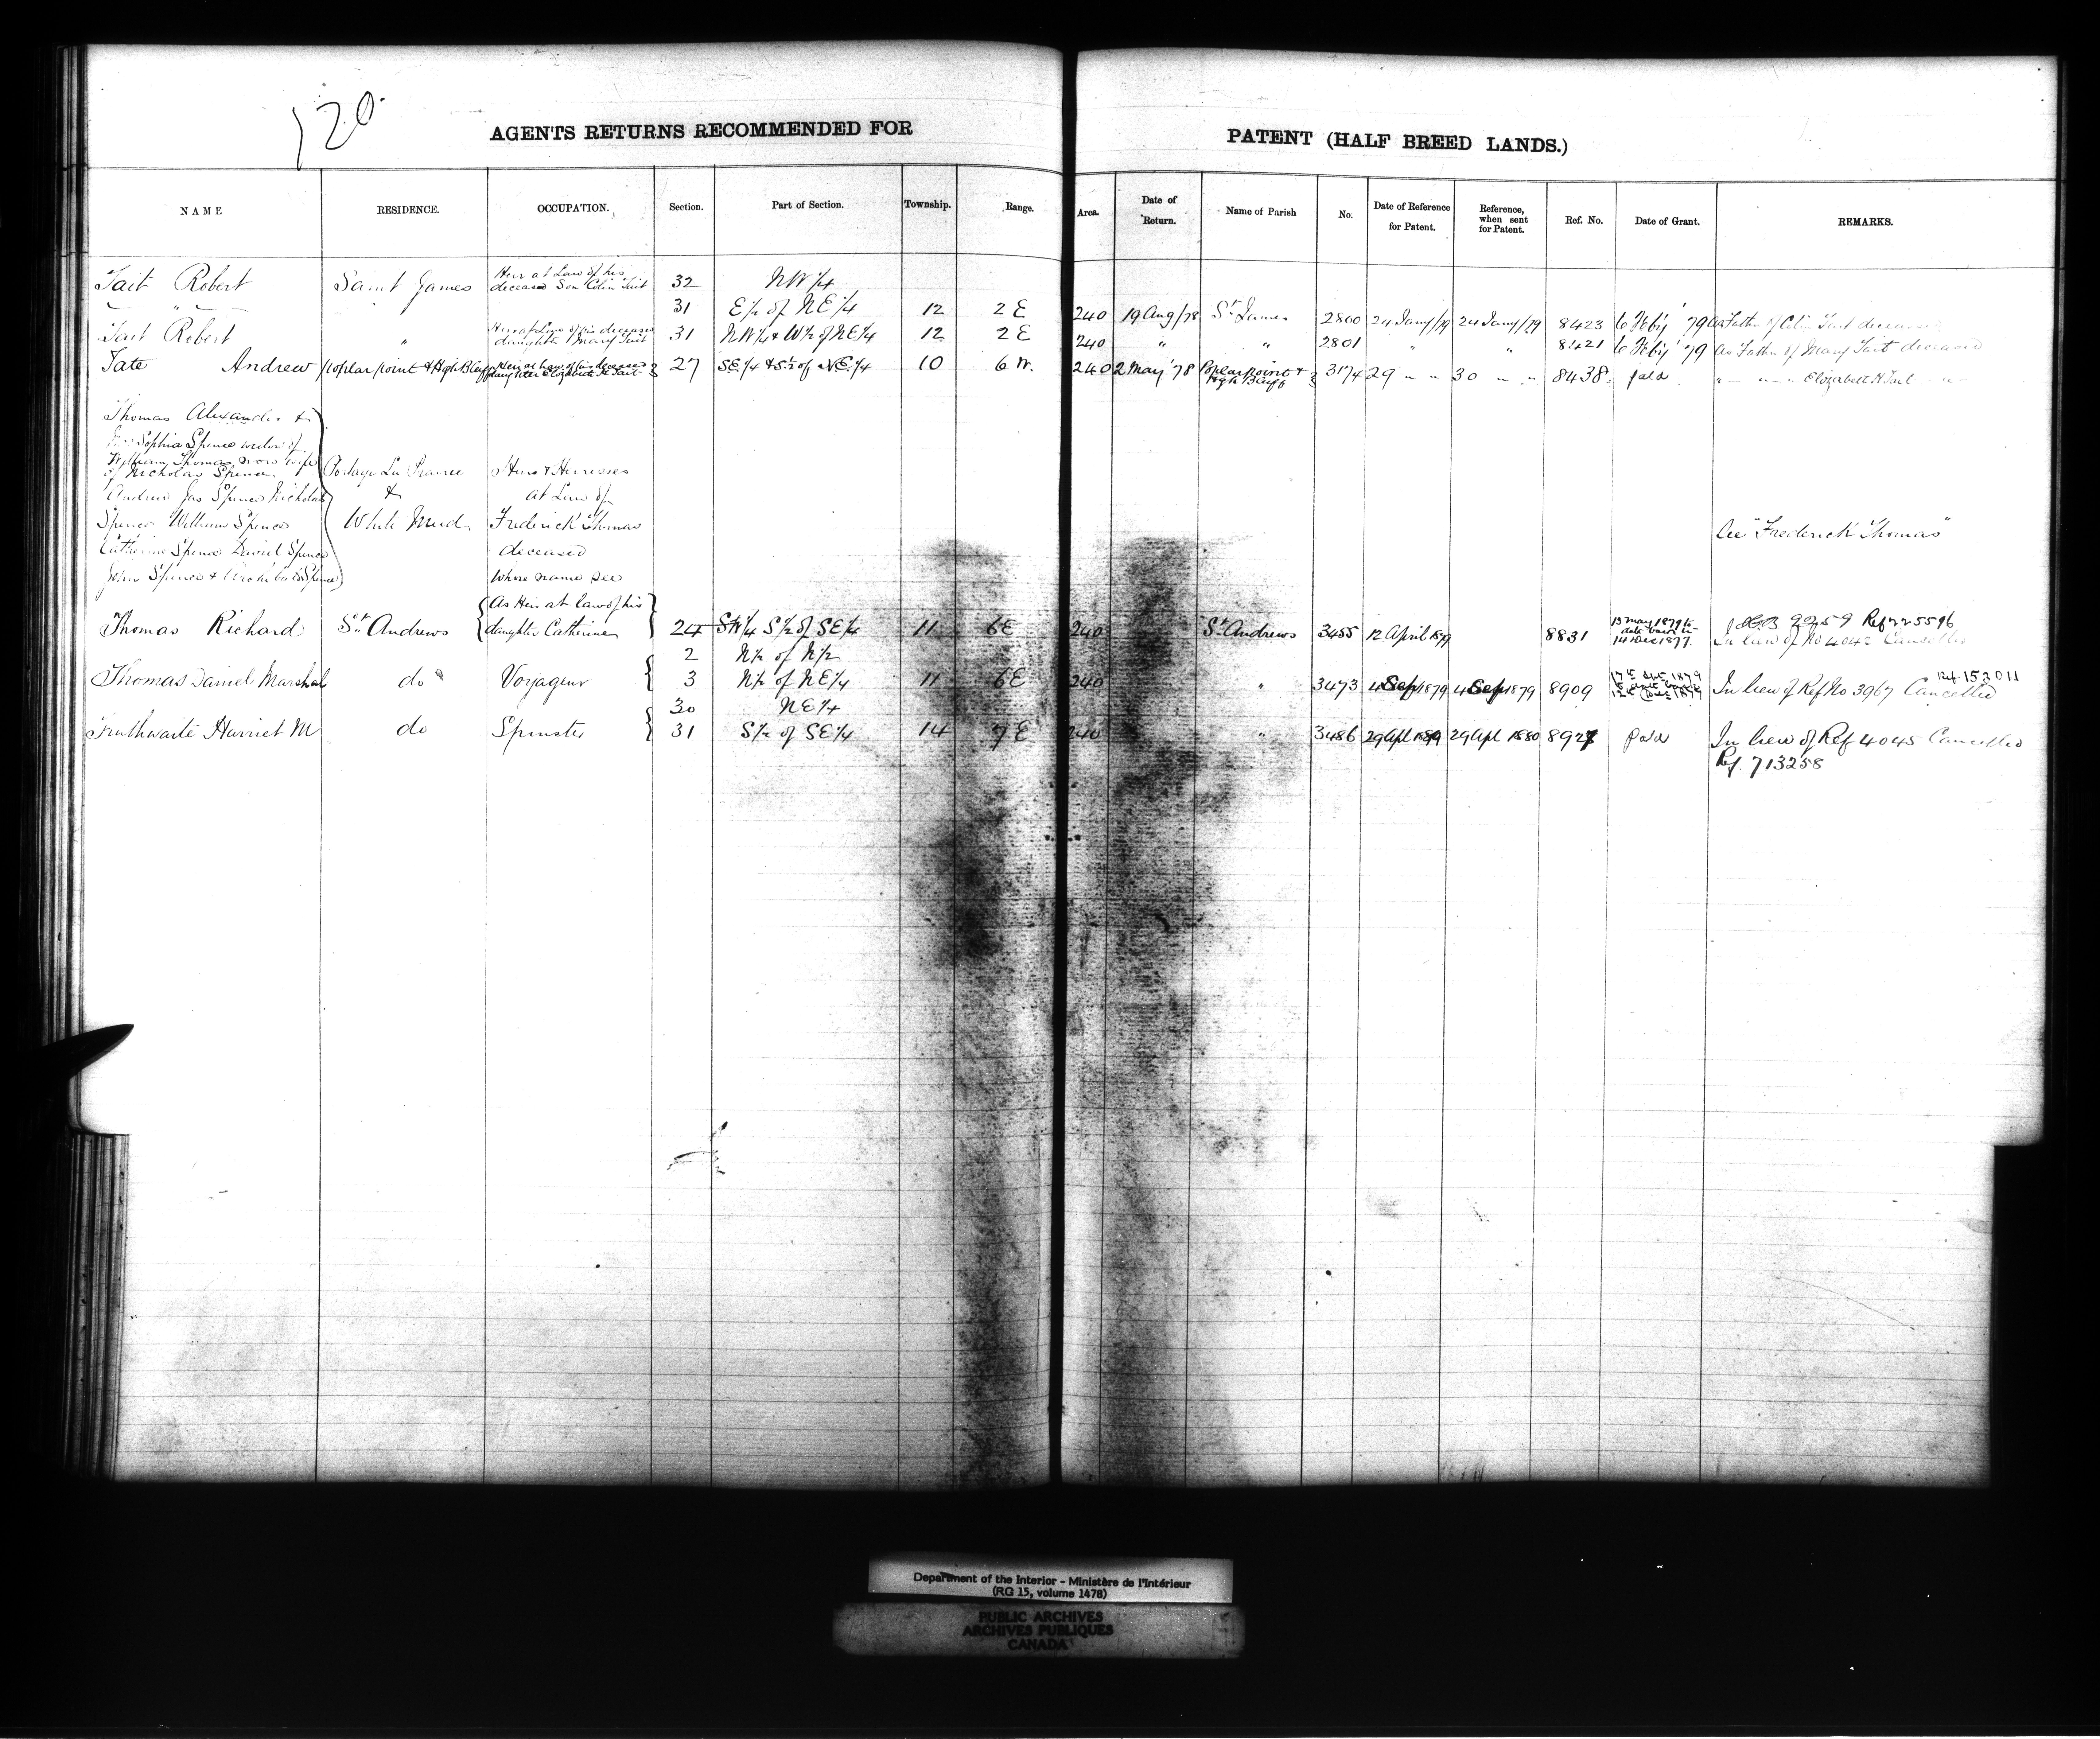 120
AGENTS RETURNS RECOMMENDED FOR PATENT (HALF BREED LANDS.)
NAME RESIDENCE. OCCUPATION. Section. Part of Section. Township. Range. Area. Date of Return. Name of Parish No. Date of Reference for Patent. Reference, when sent for Patent. Ref. No. Date of Grant. REMARKS.
Tait Robert Saint James Heir at Law of his deceased Son Colin Tait 32 NW 1/4
" 31 E 1/2 of NE 1/4 12 2 E 240 19 Aug/78 St James 2800 24 Jany/79 24 Jany/79 8423 6 Feby '79 as Father of Colin Tait deceased
Tait Robert " Heir at Law of his deceased daughter Mary Tait 31 NW 1/4 & W 1/2 of NE 1/4 12 2 E 240 " " 2801 " " 8421 6 Feby '79 As Father of Mary Tait deceased
Tate Andrew Poplar point & High Bluff Heir at Law of his deceased daughter Elizabeth H Tait 27 SE 1/4 & S 1/2 of NE 1/4 10 6 W. 240 2 May '78 Poplar point & High Bluff 3174 29 " " 30 " " 8438 " " " Elizabeth H Tait "
Thomas Alexander &
Sophia Spence widow of
William Thomas now wife
of Nicholas Spence Portage La Prairie Heirs & Heiresses
Andrew Jas Spence Nicholas & at Law of
Spence William Spence White Mud Frederick Thomas See "Frederick Thomas"
Catherine Spence David Spence deceased
John Spence & Archibald Spence Whose name see
Thomas Richard St. Andrews As Heir at law of his daughter Catherine 24 SW 1/4 S 1/2 of SE 1/4 11 6 E 240 St. Andrews 3455 12 April 1879 8831 13 May 1879 to date back to 14 Dec 1877. Ref 225596
In lieu of No 4042 Cancelled
2 N 1/2 of N 1/2
Thomas Daniel Marshal do Voyageur 3 N 1/2 of NE 1/4 11 6 E 240 " 3473 4 Sep 1879 4 Sep 1879 8909 17th Sept. 1879 153011
In lieu of Ref No 3967 Cancelled
30 NE 1/4
Truthwaite Harriet M do Spinster 31 S 1/2 of SE 1/4 14 7 E 240 " 3486 29 Apl 29 Apl 1880 8927 In lieu of Ref 4045 Cancelled
Ref. 713258
Department of the Interior - Ministère de l'Intérieur
(RG 15, volume 1478)
PUBLIC ARCHIVES
ARCHIVES PUBLIQUES
CANADA